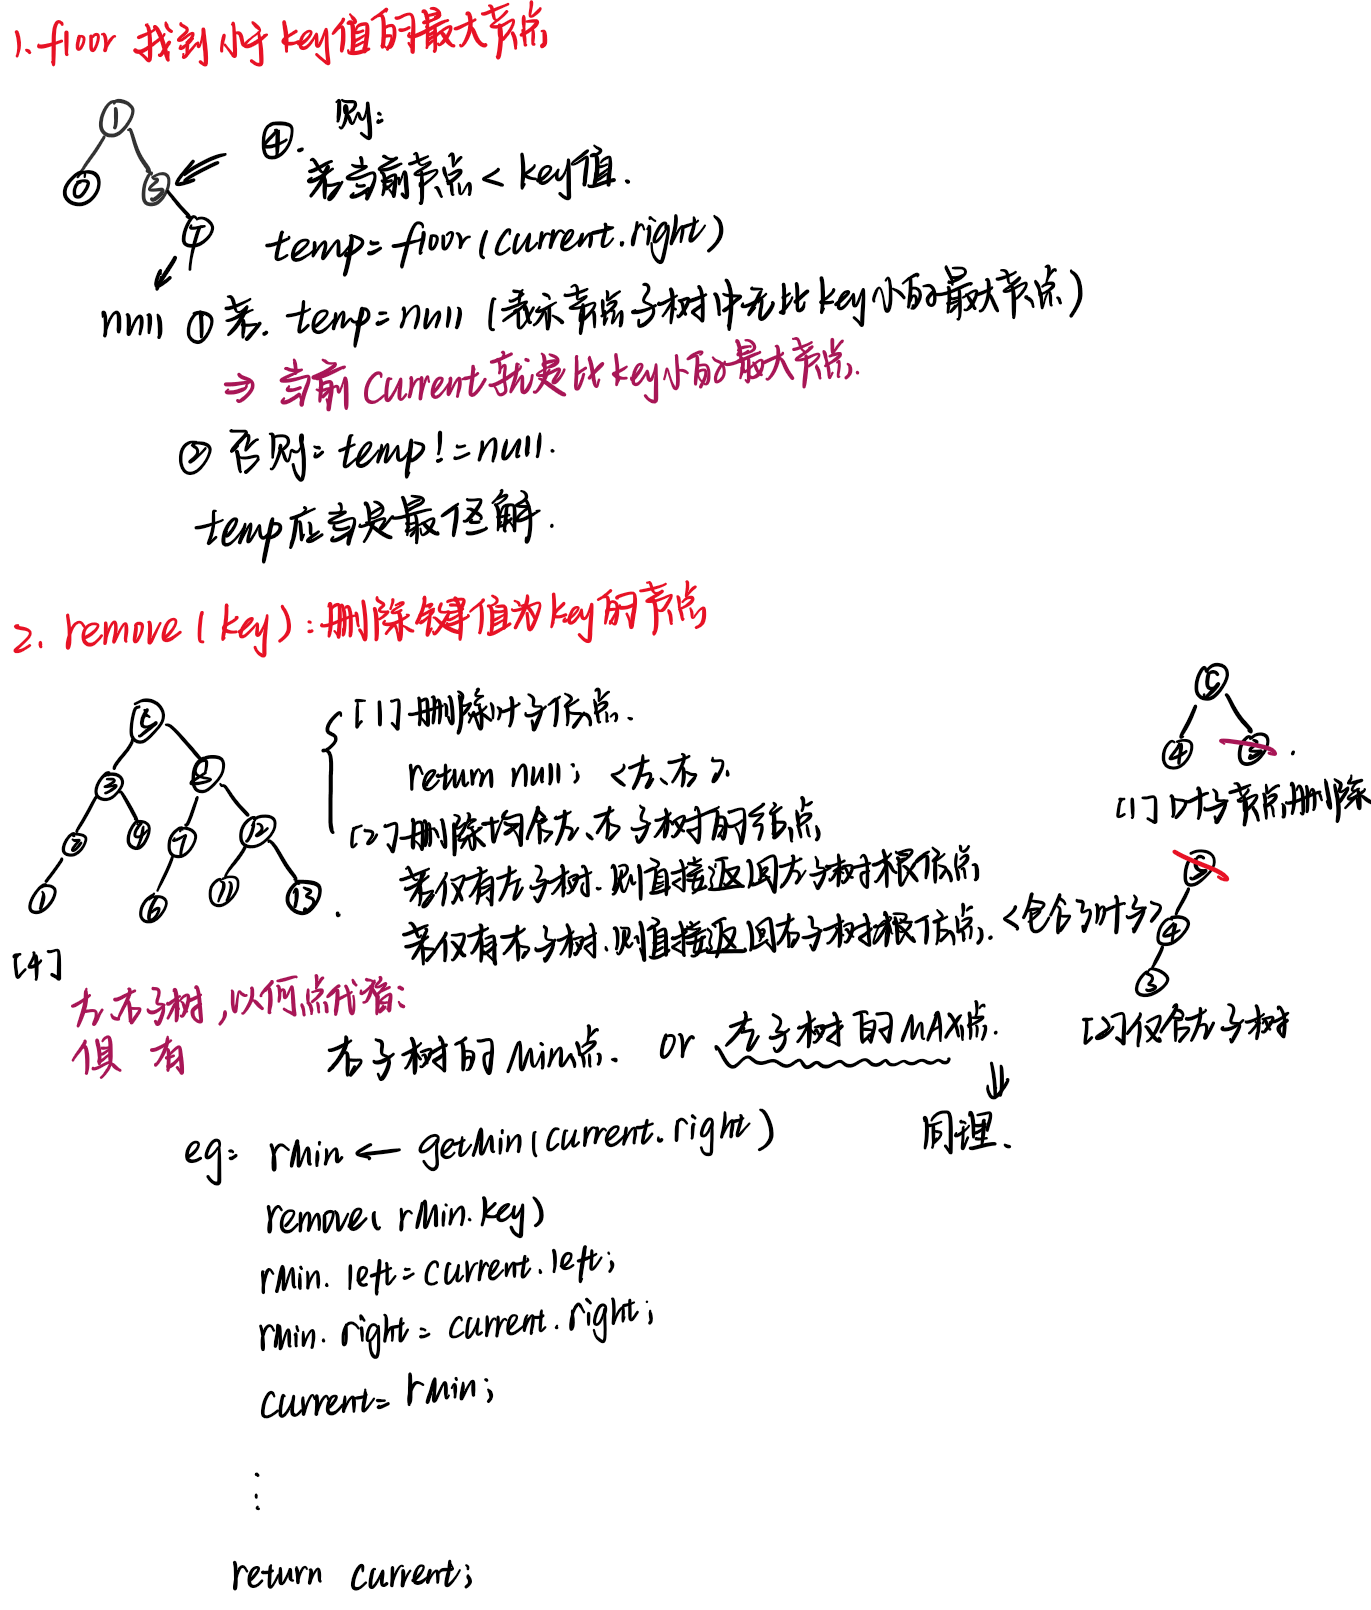 1. floor 找到小于key值的最大节点
1
0
3
7
④. 则:
若当前节点 < key值.
temp=floor(current.right)
null ① 若. temp=null (表示节点子树中无比key小的最大节点)
⇒ 当前current就是比key小的最大节点.
② 否则: temp!=null.
temp应当是最优解.
2. remove(key):删除键值为key的节点
5
3
8
2
4
7
12
1
6
11
13
[1]删除叶子结点.
return null; <左、右>.
[2]删除均含左、右子树的结点
若仅有左子树.则直接返回左子树根结点
若仅有右子树.则直接返回右子树根结点. <包含了叶子>
5
4
[1]叶子节点删除
5
4
3
[2]仅含左子树
[4]
左、右子树,以何点代替:
俱 有
右子树的min点. or 左子树的MAX点.
⇓
同理.
eg: rMin ← getMin(current.right)
remove(rMin.key)
rMin.left=current.left;
rMin.right=current.right;
current=rMin;
⋮
return current;